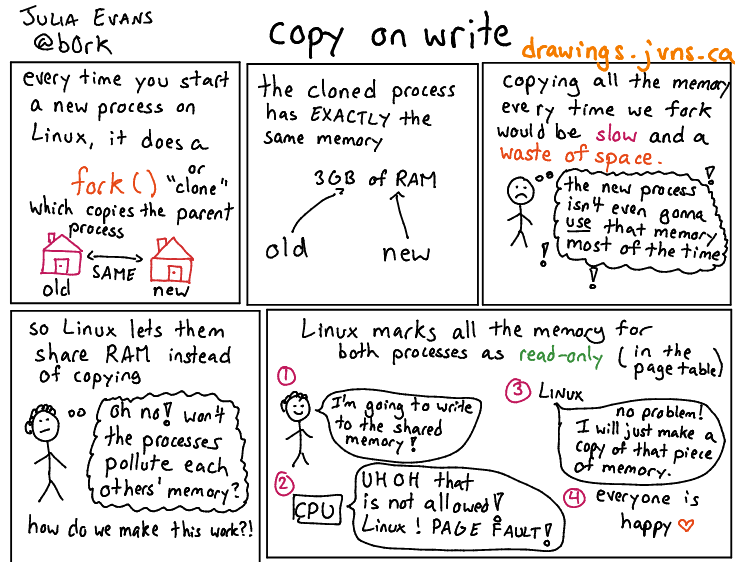 JULIA EVANS
@b0rk
copy on write
drawings.jvns.ca
every time you start
a new process on
Linux, it does a
fork() or "clone"
which copies the parent
process
SAME
old new
the cloned process
has EXACTLY the
same memory
3GB of RAM
old new
copying all the memory
every time we fork
would be slow and a
waste of space.
the new process
isn't even gonna
use that memory
most of the time
so Linux lets them
share RAM instead
of copying
oh no! won't
the processes
pollute each
others' memory?
how do we make this work?!
Linux marks all the memory for
both processes as read-only (in the
page table)
1
I'm going to write
to the shared
memory!
2
CPU
UH OH that
is not allowed!
Linux! PAGE FAULT!
3 LINUX
no problem!
I will just make a
copy of that piece
of memory.
4 everyone is
happy ♡